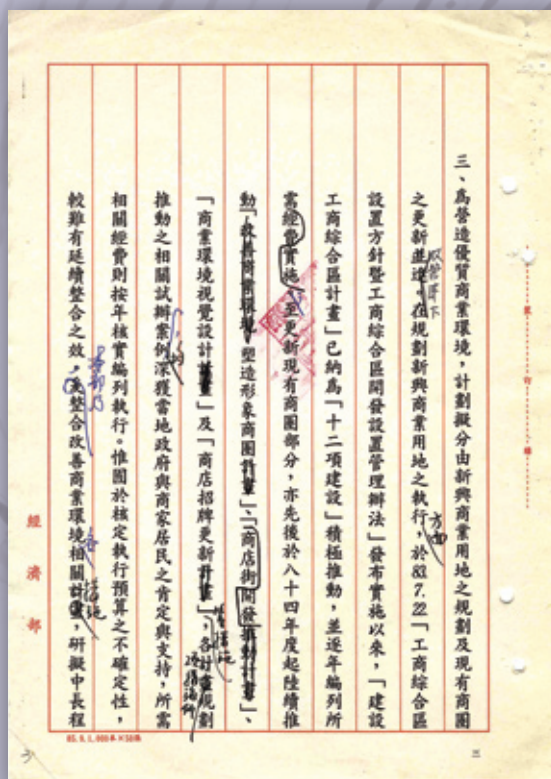 三、為營造優質商業環境,計劃擬分由新興商業用地之規劃及現有商圈
之更新並進。在規劃新興商業用地之執行,於83.7.22「工商綜合區
雙管齊下
方面
設置方針暨工商綜合區開發設置管理辦法」發布實施以來,「建設
工商綜合區計畫」已納為「十二項建設」積極推動,並逐年編列所
需經費實施。至更新現有商圈部分,亦先後於八十四年度起陸續推
動「改善商業環境,塑造形象商圈計畫」、「商店街開發推動計畫」、
「商業環境視覺設計計畫」及「商店招牌更新計畫」,各計畫規劃
等措施
推動之相關試辦案例深獲當地政府與商家居民之肯定與支持,所需
均
相關經費則按年核實編列執行。惟囿於核定執行預算之不確定性,
較難有延續整合之效,爰整合改善商業環境相關計畫,研擬中長程
本部乃
各
措施
經濟部
裝 訂 線
85.9.1,000本×50張
三